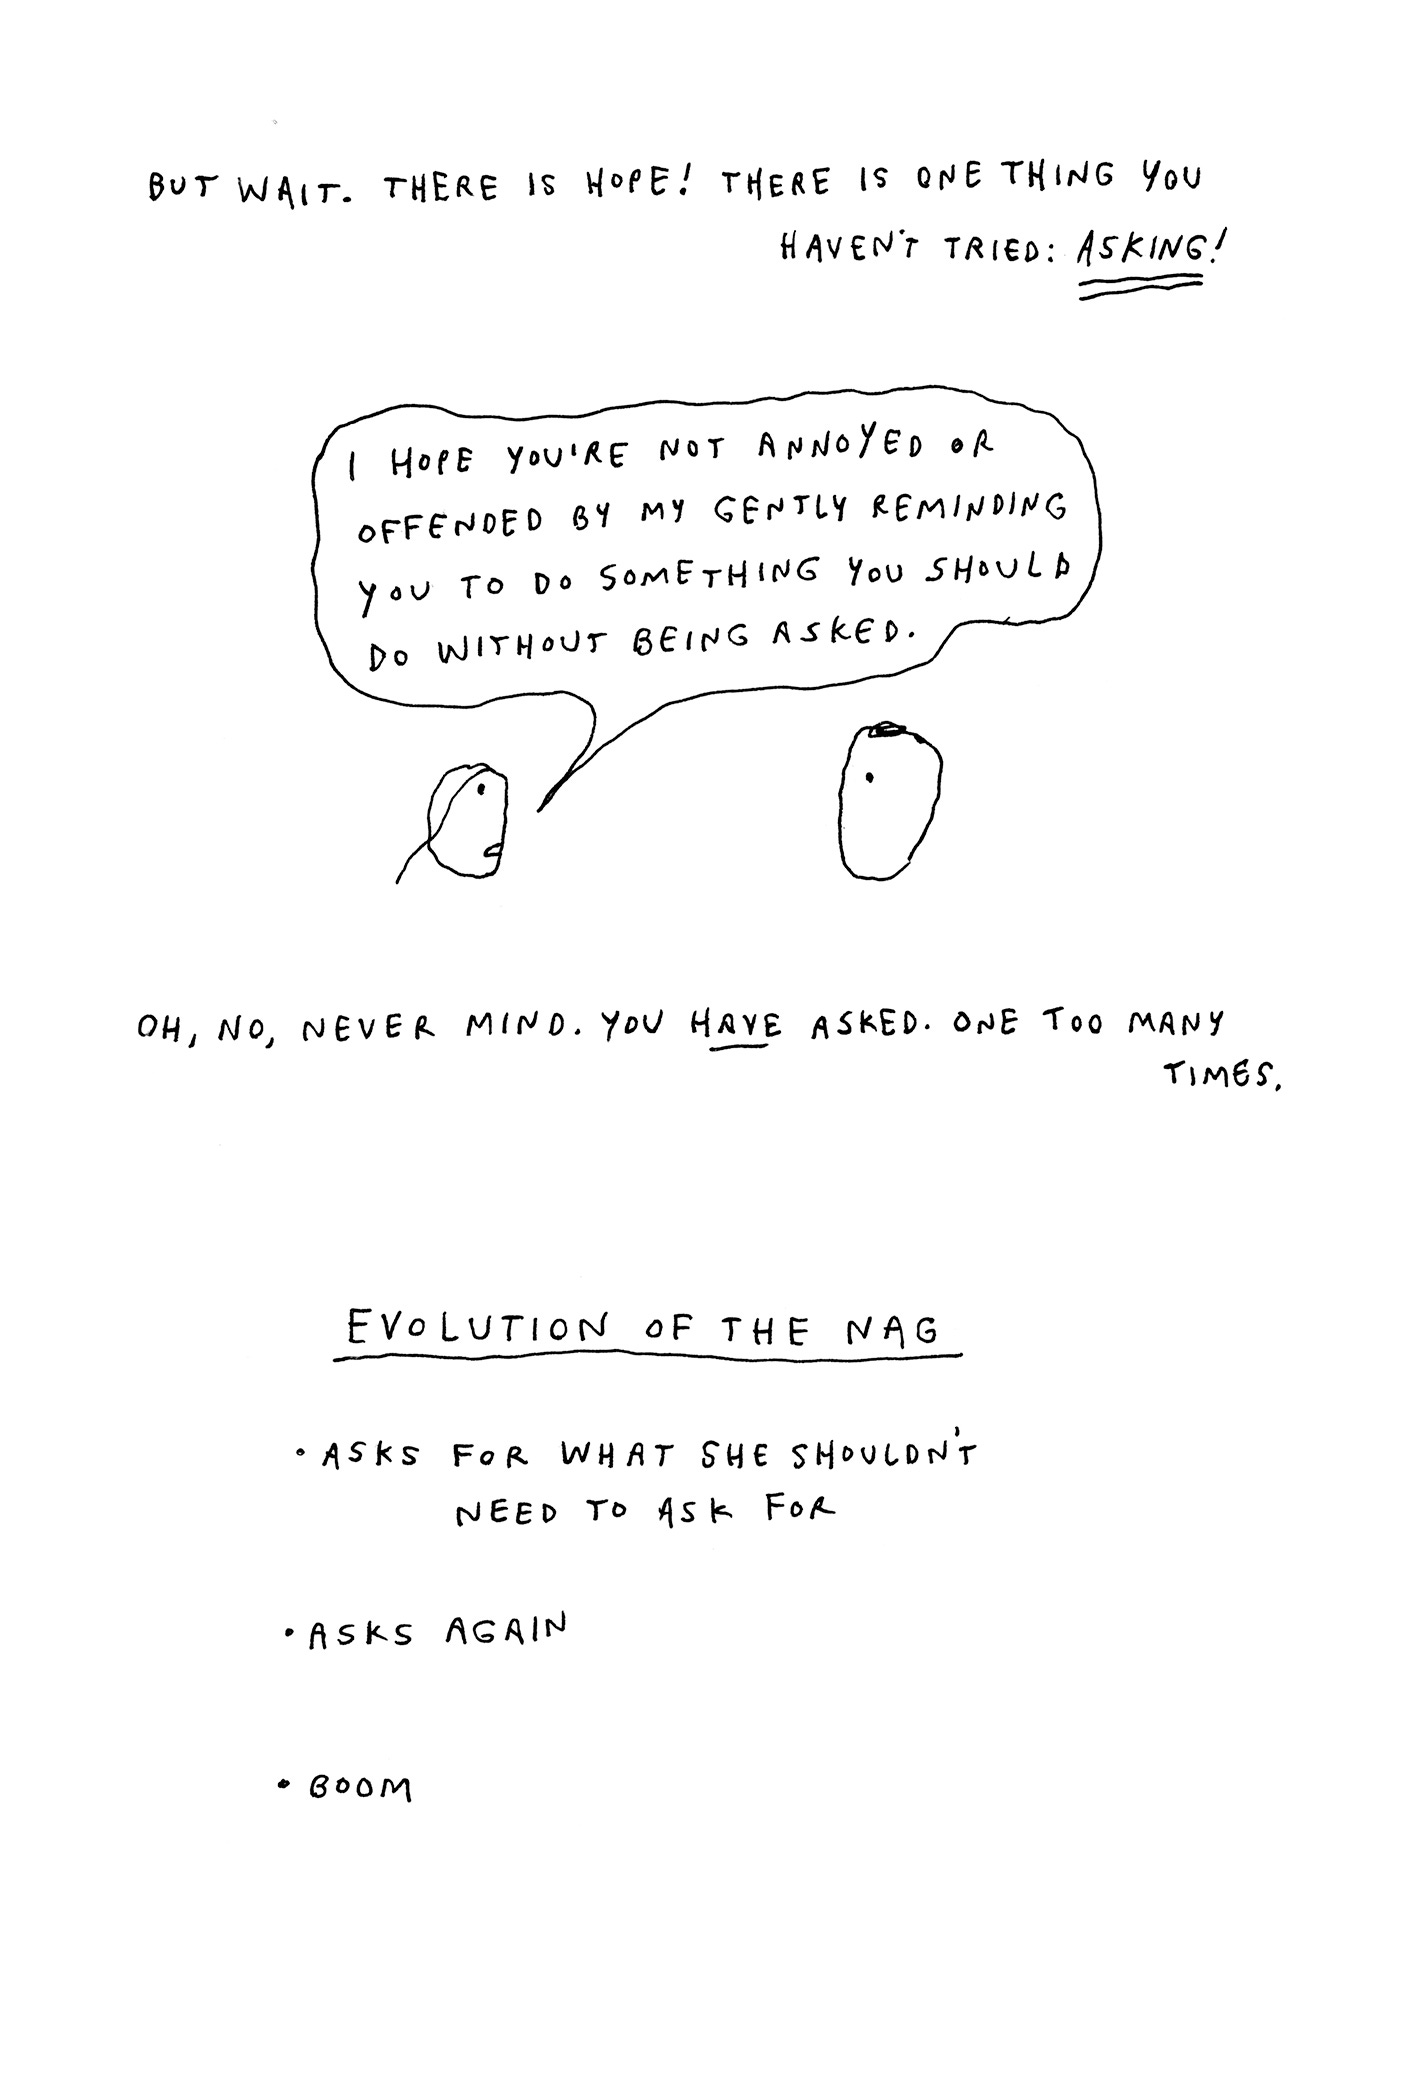 BUT WAIT. THERE IS HOPE! THERE IS ONE THING YOU
HAVEN'T TRIED: ASKING!
I HOPE YOU'RE NOT ANNOYED OR
OFFENDED BY MY GENTLY REMINDING
YOU TO DO SOMETHING YOU SHOULD
DO WITHOUT BEING ASKED.
OH, NO, NEVER MIND. YOU HAVE ASKED. ONE TOO MANY
TIMES.
EVOLUTION OF THE NAG
• ASKS FOR WHAT SHE SHOULDN'T
NEED TO ASK FOR
• ASKS AGAIN
• BOOM